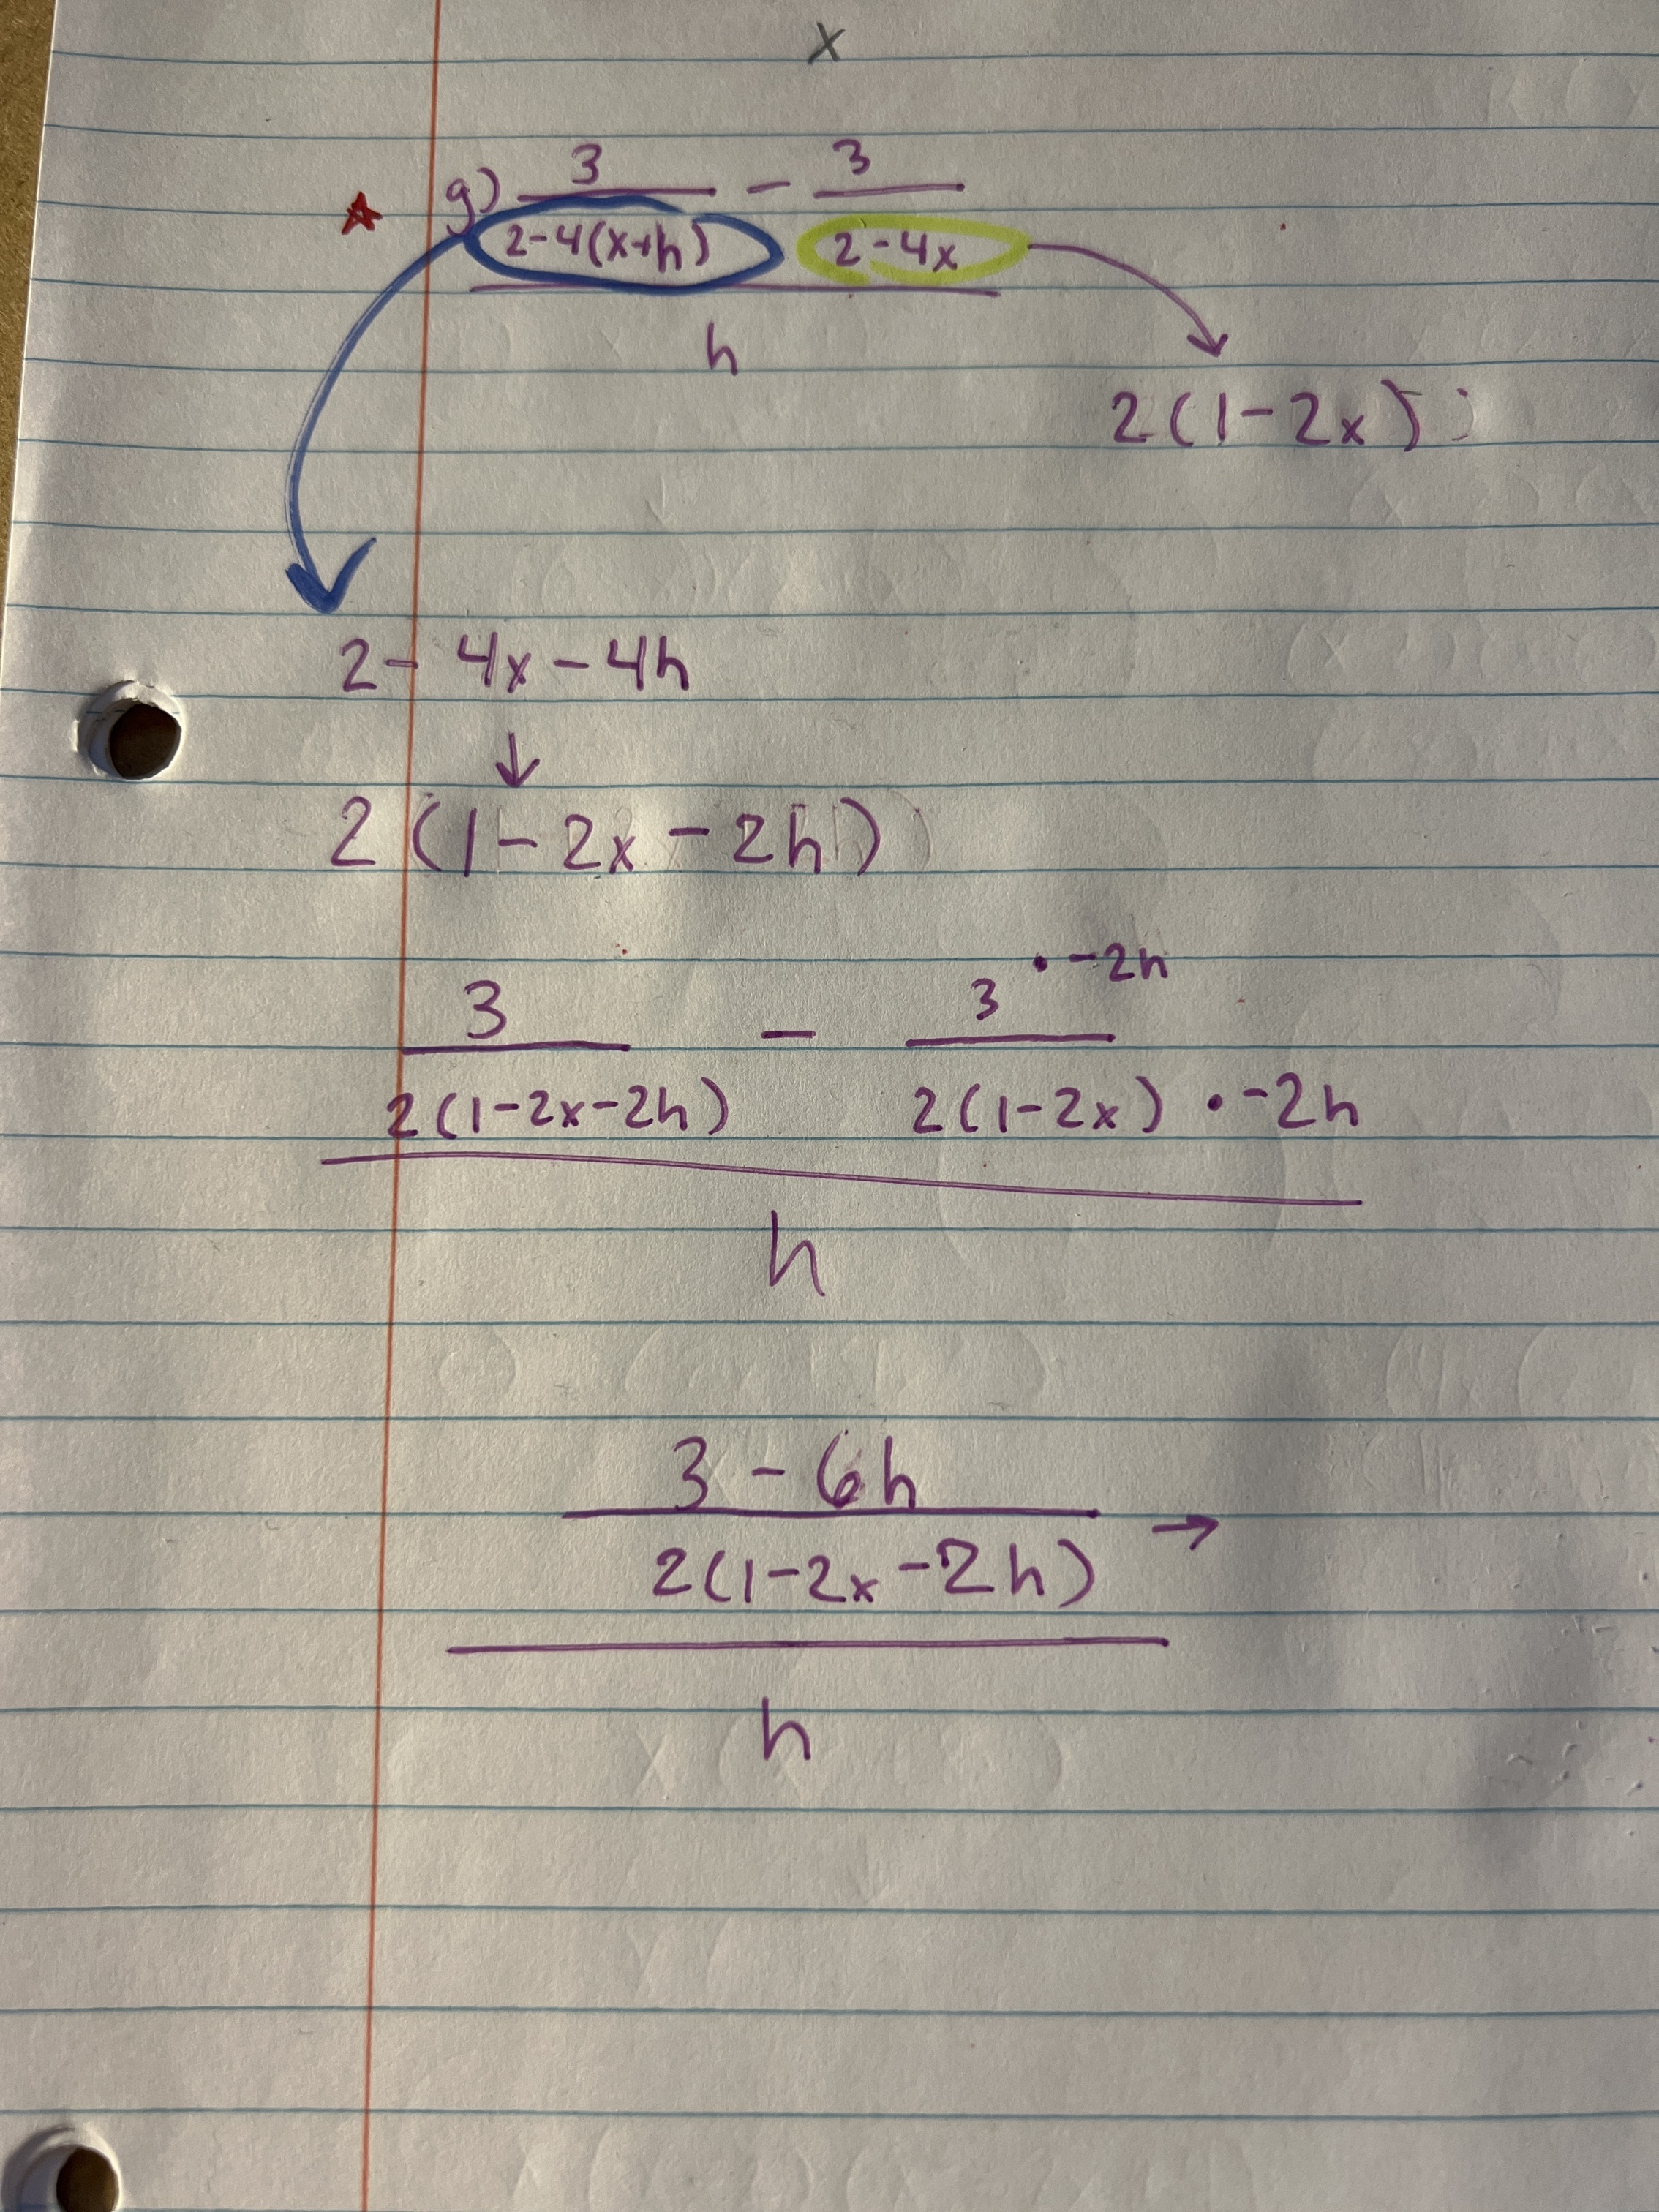 x
g) 3 - 3
2-4(x+h) 2-4x
h
2(1-2x)
2-4x-4h
↓
2(1-2x-2h)
3 - 3 • -2h
2(1-2x-2h) 2(1-2x) • -2h
h
3-6h
2(1-2x-2h) →
h